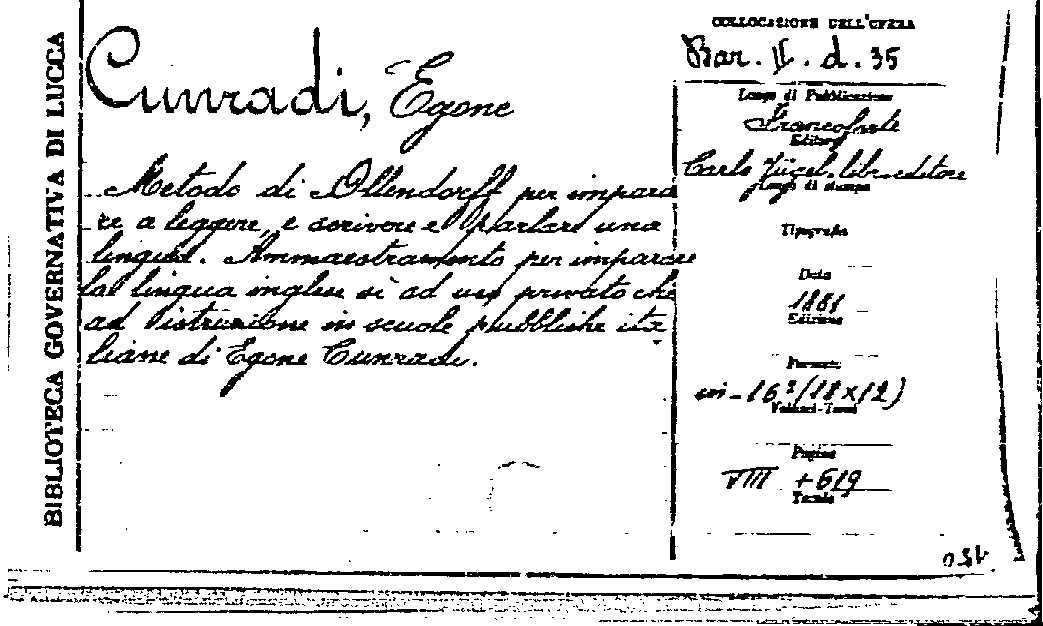 BIBLIOTECA GOVERNATIVA DI LUCCA
Cunradi, Egone
Metodo di Ollendorff per impara
re a leggere, e scrivere e parlare una
lingua. Ammaestramento per imparare
la lingua inglese sì ad uso privato che
ad istruzione in scuole pubbliche ita
liane di Egone Cunradi.
COLLOCAZIONE DELL'OPERA
Bar. II. d. 35
Luogo di Pubblicazione
Francoforte
Editore
Carlo Jügel. libr. editore
Luogo di stampa
Tipografia
Data
1861
Edizione
Formato
in-16° (18x12)
Volumi-Tomi
Pagine
VIII +619
Tavole